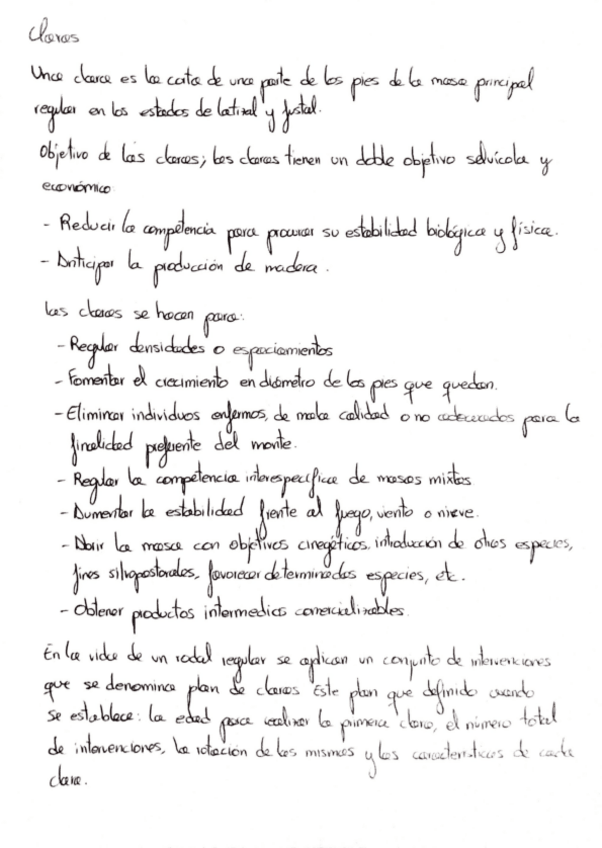 Claras
Una clara es la corta de una parte de los pies de la masa principal
regular en los estados de latizal y fustal.
Objetivo de las claras; las claras tienen un doble objetivo selvícola y
económico
- Reducir la competencia para procurar su estabilidad biológica y física.
- Anticipar la producción de madera.
Las claras se hacen para:
- Regular densidades o espaciamientos
- Fomentar el crecimiento en diámetro de los pies que quedan.
- Eliminar individuos enfermos, de mala calidad o no adecuados para la
finalidad preferente del monte.
- Regular la competencia interespecífica de masas mixtas
- Aumentar la estabilidad frente al fuego, viento o nieve.
- Abrir la masa con objetivos cinegéticos, introducción de otras especies,
fines silvopastorales, favorecer determinadas especies, etc.
- Obtener productos intermedios comercializables.
En la vida de un rodal regular se aplican un conjunto de intervenciones
que se denomina plan de claras Este plan que definido cuando
se establece: la edad para realizar la primera clara, el número total
de intervenciones, la rotación de las mismas y las características de cada
clara.